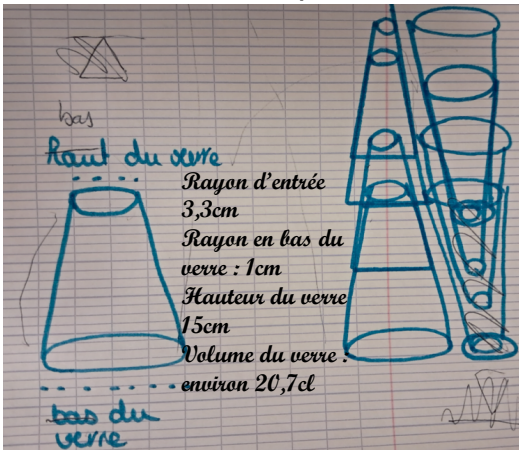 bas
Haut du verre
Rayon d'entrée
3,3cm
Rayon en bas du
verre : 1cm
Hauteur du verre
15cm
Volume du verre :
environ 20,7cl
bas du
verre